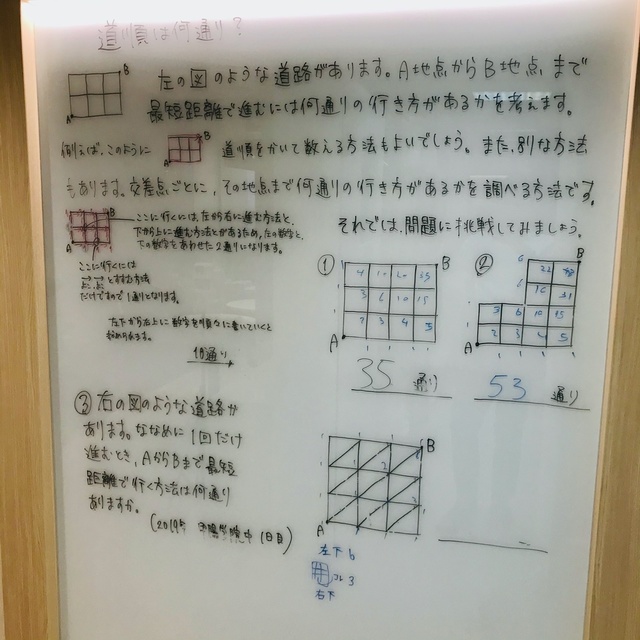 道順は何通り?
B
左の図のような道路があります。A地点からB地点まで
A
最短距離で進むには何通りの行き方があるかを考えます。
例えば、このように
B
A
道順をかいて数える方法もよいでしょう。また、別な方法
もあります。交差点ごとに、その地点まで何通りの行き方があるかを調べる方法です。
B
A
ここに行くには、左から右に進む方法と、
下から上に進む方法とがあるため、左の数字と、
下の数字をあわせた2通りになります。
それでは、問題に挑戦してみましょう。
ここに行くには
とすすむ方法
だけですので1通りとなります。
左下から右上に数字を順々に書いていくと
求められます。
10通り
①
B
4 10 20 35
3 6 10 15
2 3 4 5
A
35 通り
②
B
6
6
3 6 10 15
2 3 4 5
A
53 通り
③ 右の図のような道路が
あります。ななめに1回だけ
進むとき、AからBまで最短
距離で行く方法は何通り
ありますか。
1日目)
B
A
左下 6
3
右下